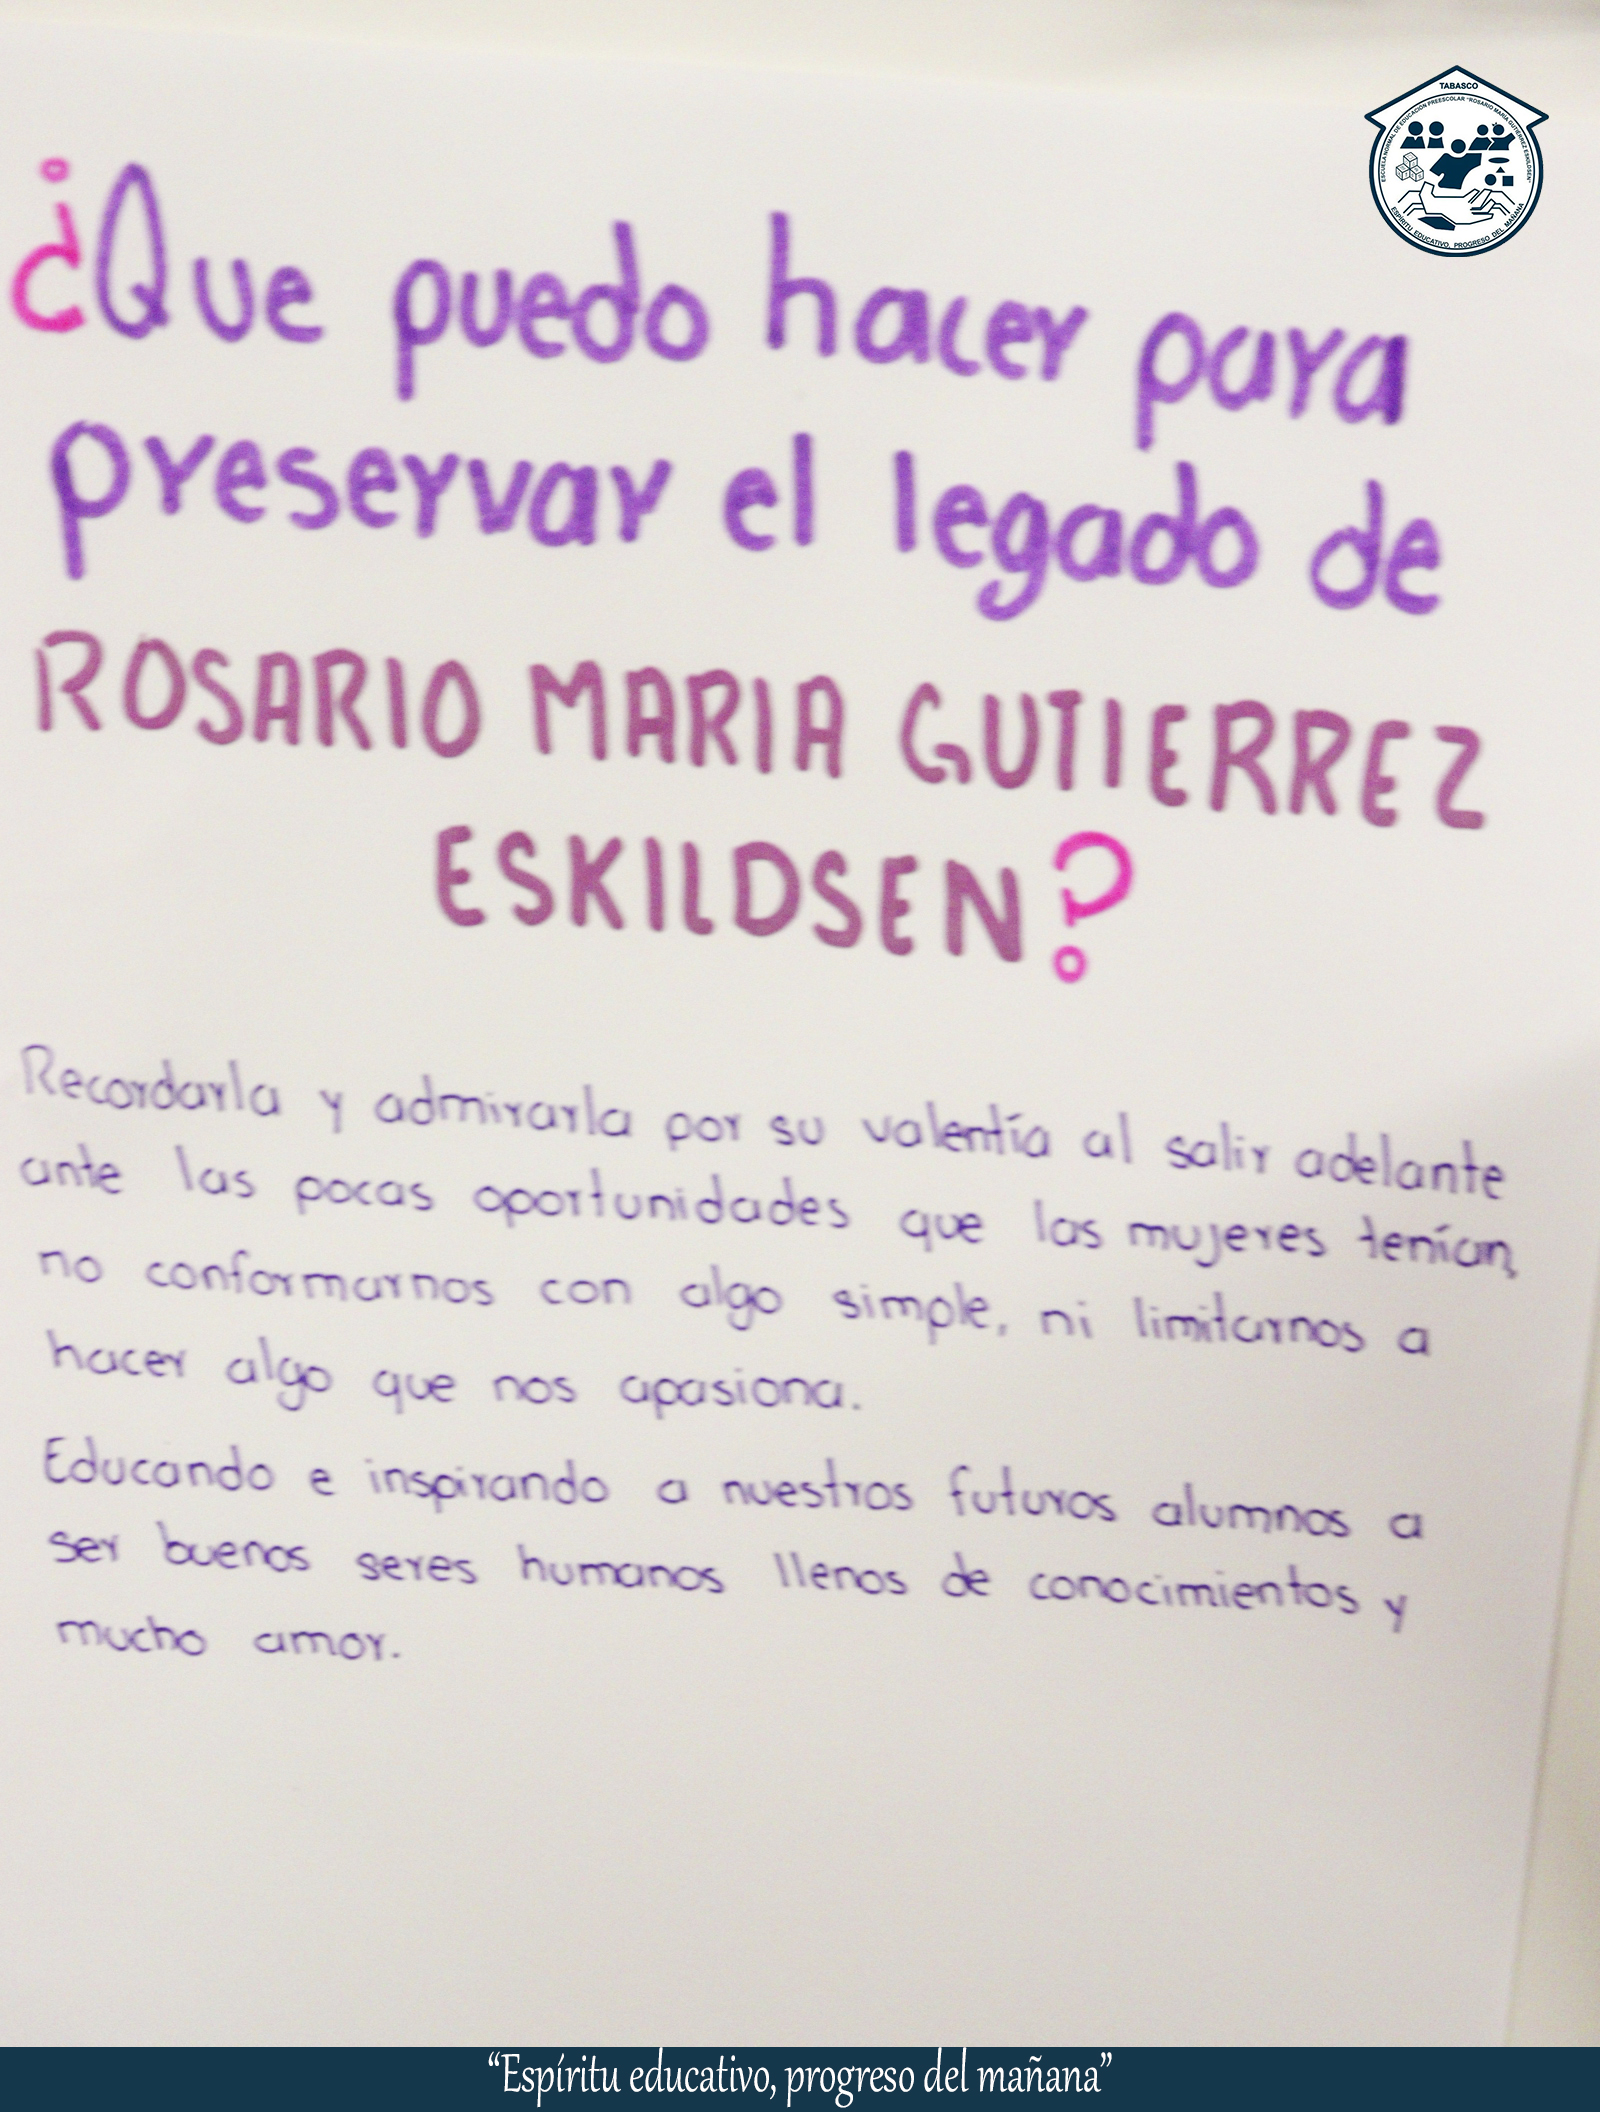 TABASCO
ESCUELA NORMAL DE EDUCACIÓN PREESCOLAR "ROSARIO MARÍA GUTIÉRREZ ESKILDSEN"
ESPÍRITU EDUCATIVO, PROGRESO DEL MAÑANA
¿Que puedo hacer para
preservar el legado de
ROSARIO MARIA GUTIERREZ
ESKILDSEN?
Recordarla y admirarla por su valentía al salir adelante
ante las pocas oportunidades que las mujeres tenían,
no conformarnos con algo simple, ni limitarnos a
hacer algo que nos apasiona.
Educando e inspirando a nuestros futuros alumnos a
ser buenos seres humanos llenos de conocimientos y
mucho amor.
“Espíritu educativo, progreso del mañana”